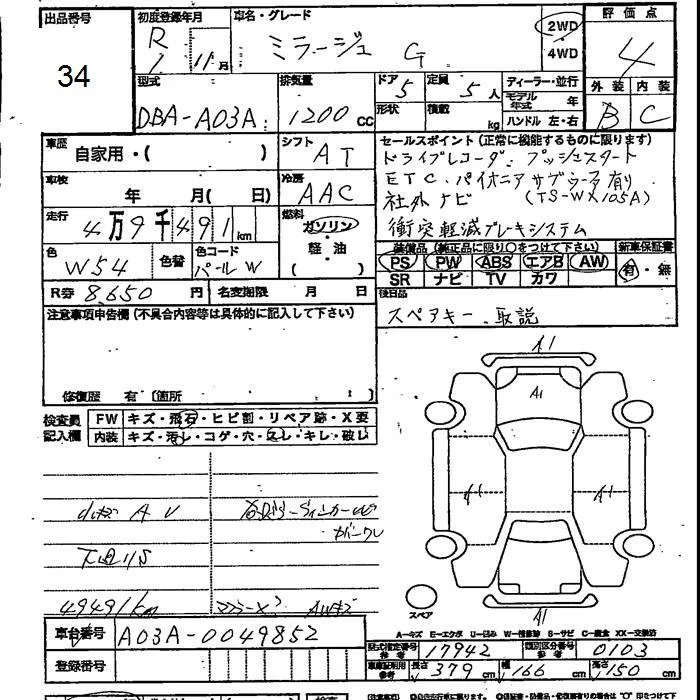 出品番号
34
初度登録年月
R 1 11月
車名・グレード
ミラージュ G
2WD
4WD
評価点
4
外装 内装
B C
型式
DBA-A03A
排気量
1200 CC
ドア 5
定員 5 人
形状
積載 kg
ディーラー・並行
モデル年式 年
ハンドル 左・右
車歴
自家用・( )
シフト
AT
車検
年 月( 日)
冷房
AAC
走行
4万9千491km
燃料
ガソリン
軽・油
( )
色
W54
色替
色コード
パールW
R券 8,650 円
名変期限 月 日
セールスポイント(正常に機能するものに限ります)
ドライブレコーダ・プッシュスタート
ETC・パイオニアサブウーファ有り
社外ナビ (TS-WX105A)
衝突軽減ブレーキシステム
装備品(純正品に限り○をつけて下さい)
新車保証書
PS PW ABS エアB AW
有・無
SR ナビ TV カワ
後日品
スペアキー、取説
注意事項申告欄(不具合内容等は具体的に記入して下さい)
修復歴 有〔箇所 〕
検査員記入欄
FW キズ・飛石・ヒビ割・リペア跡・X要
内装 キズ・汚レ・コゲ・穴・スレ・キレ・破レ
A U
下回りS
49491km
A1
A1
A1
A1
A1
スペア
A-キズ E-エクボ U-凹み W-補修跡 S-サビ C-腐食 XX-交換済
車台番号 A03A-0049852
登録番号
型式指定番号参考 17942
類別区分番号参考 0103
車庫証明用参考
長さ 379 cm
幅 166 cm
高さ 150 cm